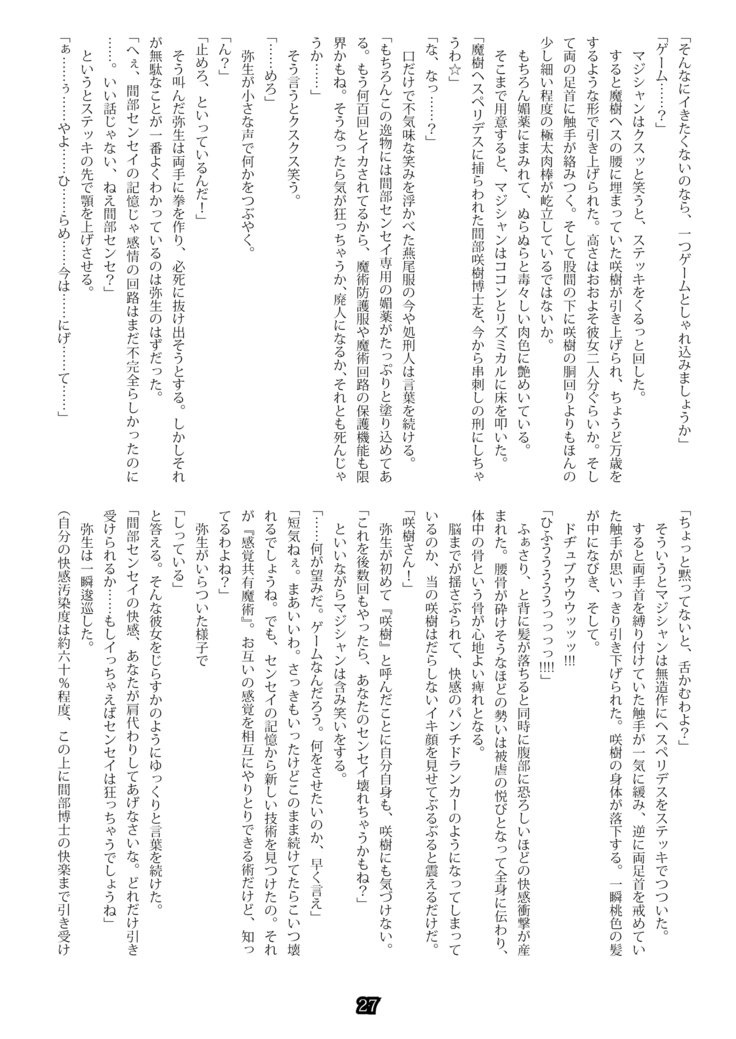 「そんなにイきたくないのなら、一つゲームとしゃれ込みましょうか」
「ゲーム……？」
マジシャンはクスッと笑うと、ステッキをくるっと回した。
すると魔樹ヘスの腰に埋まっていた咲樹が引き上げられ、ちょうど万歳を
するような形で引き上げられた。高さはおおよそ彼女二人分ぐらいか。そし
て両の足首に触手が絡みつく。そして股間の下に咲樹の胴回りよりもほんの
少し細い程度の極太肉棒が屹立しているではないか。
もちろん媚薬にまみれて、ぬらぬらと毒々しい肉色に艶めいている。
そこまで用意すると、マジシャンはココンとリズミカルに床を叩いた。
「魔樹ヘスペリデスに捕らわれた間部咲樹博士を、今から串刺しの刑にしちゃ
うわ☆」
「な、なっ……？」
口だけで不気味な笑みを浮かべた燕尾服の今や処刑人は言葉を続ける。
「もちろんこの逸物には間部センセイ専用の媚薬がたっぷりと塗り込めてあ
る。もう何百回とイカされてるから、魔術防護服や魔術回路の保護機能も限
界かもね。そうなったら気が狂っちゃうか、廃人になるか、それとも死んじゃ
うか……」
そう言うとクスクス笑う。
「……めろ」
弥生が小さな声で何かをつぶやく。
「ん？」
「止めろ、といっているんだ！」
そう叫んだ弥生は両手に拳を作り、必死に抜け出そうとする。しかしそれ
が無駄なことが一番よくわかっているのは弥生のはずだった。
「へぇ、間部センセイの記憶じゃ感情の回路はまだ不完全らしかったのに
……。いい話じゃない、ねえ間部センセ？」
というとステッキの先で顎を上げさせる。
「ぁ……ぅ……やよ……ひ……らめ……今は……にげ……て……」
「ちょっと黙ってないと、舌かむわよ？」
そういうとマジシャンは無造作にヘスペリデスをステッキでつついた。
すると両手首を縛り付けていた触手が一気に緩み、逆に両足首を戒めてい
た触手が思いっきり引き下げられた。咲樹の身体が落下する。一瞬桃色の髪
が中になびき、そして。
ドヂュブウウウッッッ!!!
「ひふうううううっつっっ!!!!」
ふぁさり、と背に髪が落ちると同時に腹部に恐ろしいほどの快感衝撃が産
まれた。腰骨が砕けそうなほどの勢いは被虐の悦びとなって全身に伝わり、
体中の骨という骨が心地よい痺れとなる。
脳までが揺さぶられて、快感のパンチドランカーのようになってしまって
いるのか、当の咲樹はだらしないイキ顔を見せてぶるぶると震えるだけだ。
「咲樹さん！」
弥生が初めて『咲樹』と呼んだことに自分自身も、咲樹にも気づけない。
「これを後数回もやったら、あなたのセンセイ壊れちゃうかもね？」
といいながらマジシャンは含み笑いをする。
「……何が望みだ。ゲームなんだろう。何をさせたいのか、早く言え」
「短気ねぇ。まあいいわ。さっきもいったけどこのまま続けてたらこいつ壊
れるでしょうね。でも、センセイの記憶から新しい技術を見つけたの。それ
が『感覚共有魔術』。お互いの感覚を相互にやりとりできる術だけど、知っ
てるわよね？」
弥生がいらついた様子で
「しっている」
と答える。そんな彼女をじらすかのようにゆっくりと言葉を続けた。
「間部センセイの快感、あなたが肩代わりしてあげなさいな。どれだけ引き
受けられるか……もしイっちゃえばセンセイは狂っちゃうでしょうね」
弥生は一瞬逡巡した。
（自分の快感汚染度は約六十％程度、この上に間部博士の快楽まで引き受け
27